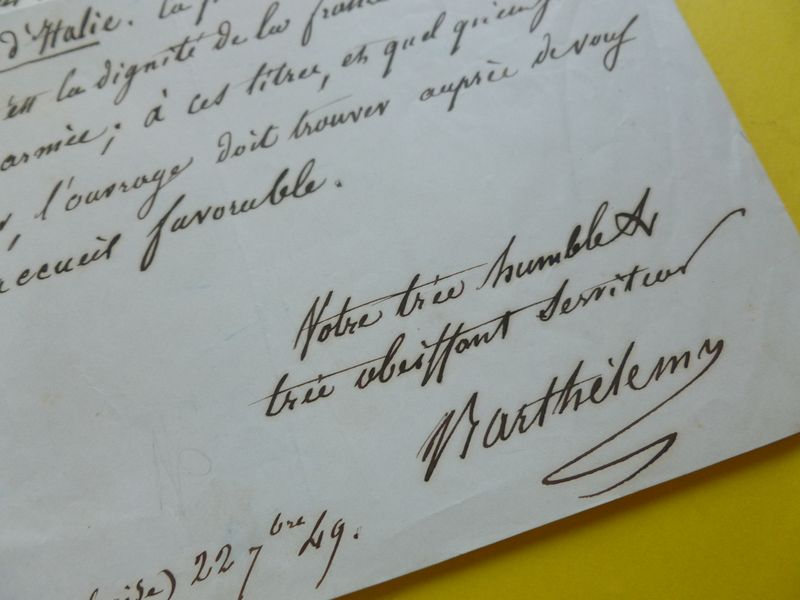 d'Italie. la
c'est la dignité de la france
armée; à ces titres, et quel qu'en
l'ouvrage doit trouver auprès de vous
accueil favorable.
Votre très humble &
très obeissant serviteur
Barthélemy
22 7bre 49.